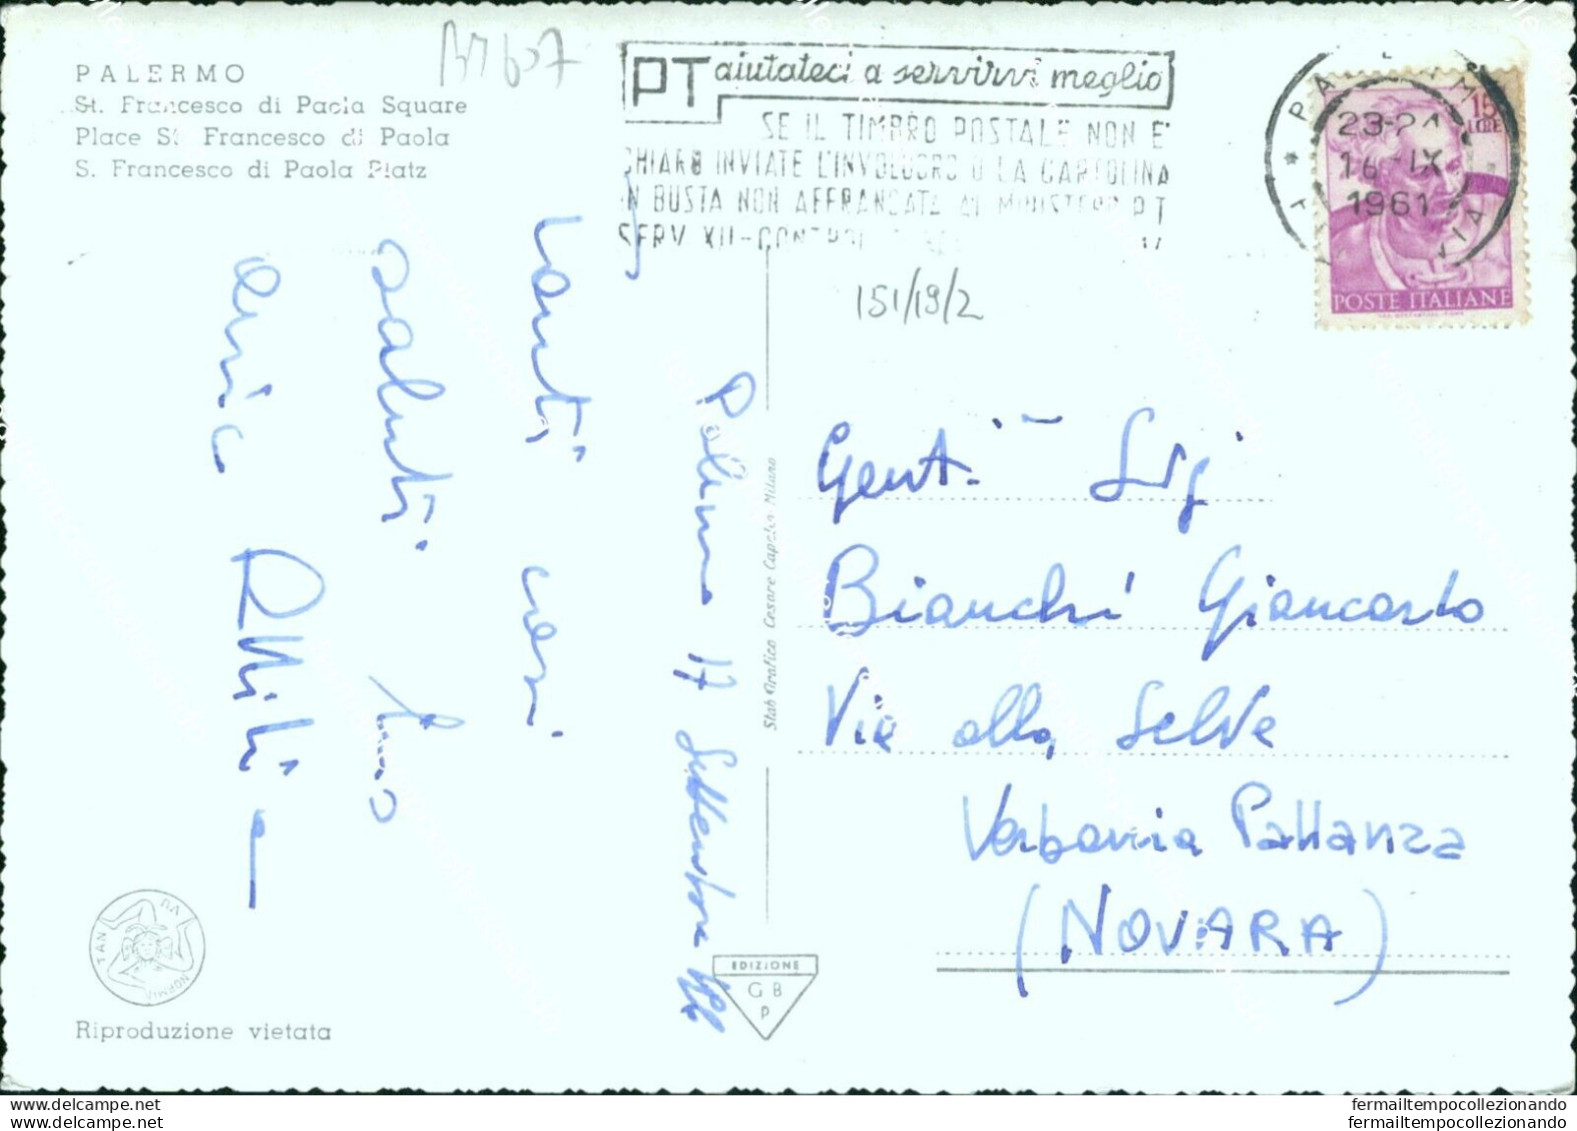 PALERMO
St. Francesco di Paola Square
Place St. Francesco di Paola
S. Francesco di Paola Platz
PT aiutateci a servirvi meglio
SE IL TIMBRO POSTALE NON E'
CHIARO INVIATE L'INVOLUCRO O LA CARTOLINA
IN BUSTA NON AFFRANCATA AL MINISTERO P T
SERV XII-
23-24
16-IX
1961
15
LIRE
POSTE ITALIANE
151/19/2
Tanti cari
saluti
Palermo 17 Settembre
Gent. Sig
Bianchi Giancarlo
Via alla Selve
Verbania Pallanza
(NOVARA)
Stab Grafico Cesare Capello-Milano
EDIZIONE
G B
P
Riproduzione vietata
www.delcampe.net
fermailtempocollezionando
fermailtempocollezionando